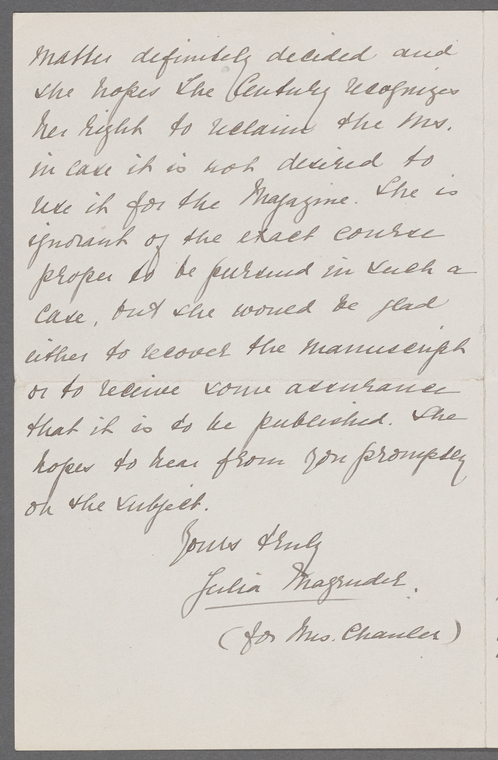 matter definitely decided and
she hopes The Century recognizes
her right to reclaim the Ms.
in case it is not desired to
use it for the Magazine. She is
ignorant of the exact course
proper to be pursued in such a
case, but she would be glad
either to recover the manuscript
or to receive some assurance
that it is to be published. She
hopes to hear from you promptly
on the subject.
Yours truly
Julia Magruder.
(for Mrs. Chanler)